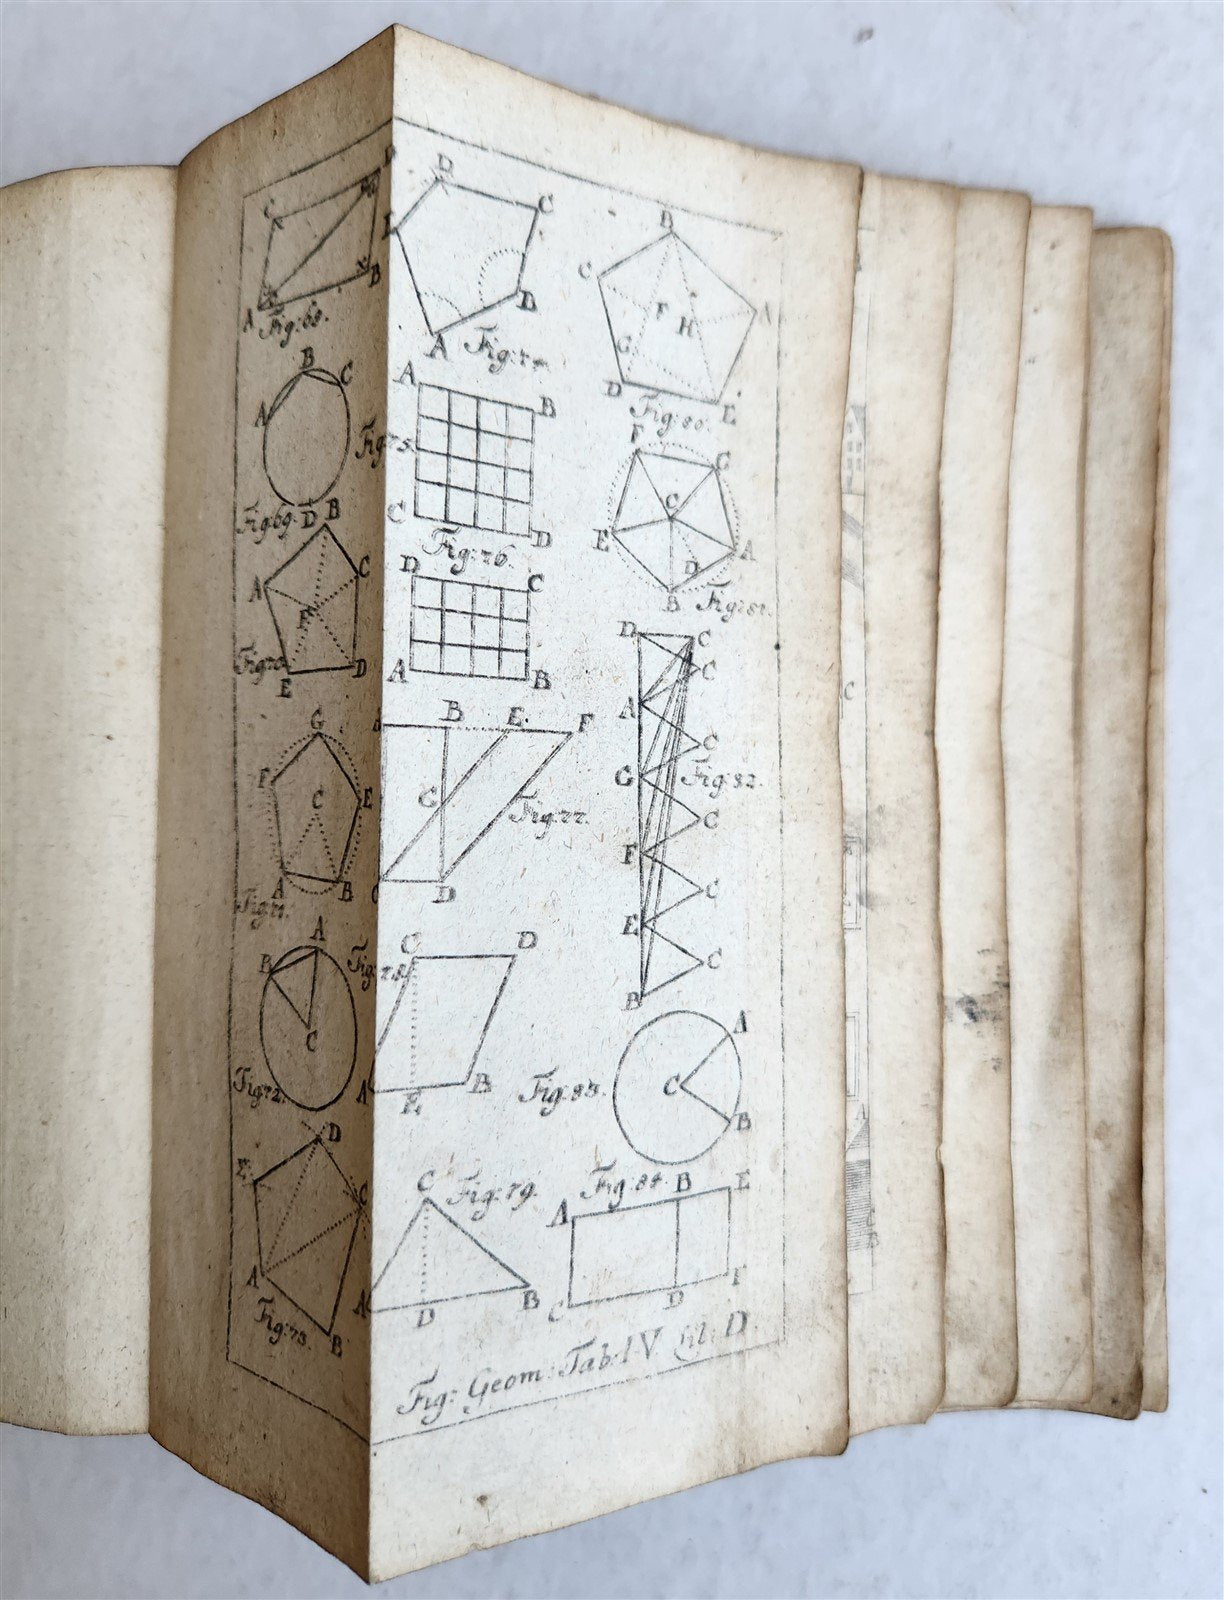 D
C
B
A
Fig: 68.
B
C
A
Fig: 69.
D
B
A
C
F
Fig: 70.
E
D
G
F
C
E
A
B
Fig: 71.
A
B
C
Fig: 72.
D
E
C
A
Fig: 73.
B
D
C
E
B
A
Fig: 74.
A
B
Fig: 75.
C
D
Fig: 76.
D
C
A
B
B
E
F
G
Fig: 77.
C
D
C
D
Fig: 78.
A
E
B
C
Fig: 79.
A
D
B
B
C
A
F
H
G
D
E
Fig: 80.
F
G
C
E
A
D
B
Fig: 81.
D
C
C
A
C
G
Fig: 82.
C
F
C
E
C
B
A
Fig: 83.
C
B
Fig: 84.
A
B
E
C
D
F
Fig: Geom: Tab: IV. lit: D.
C
A